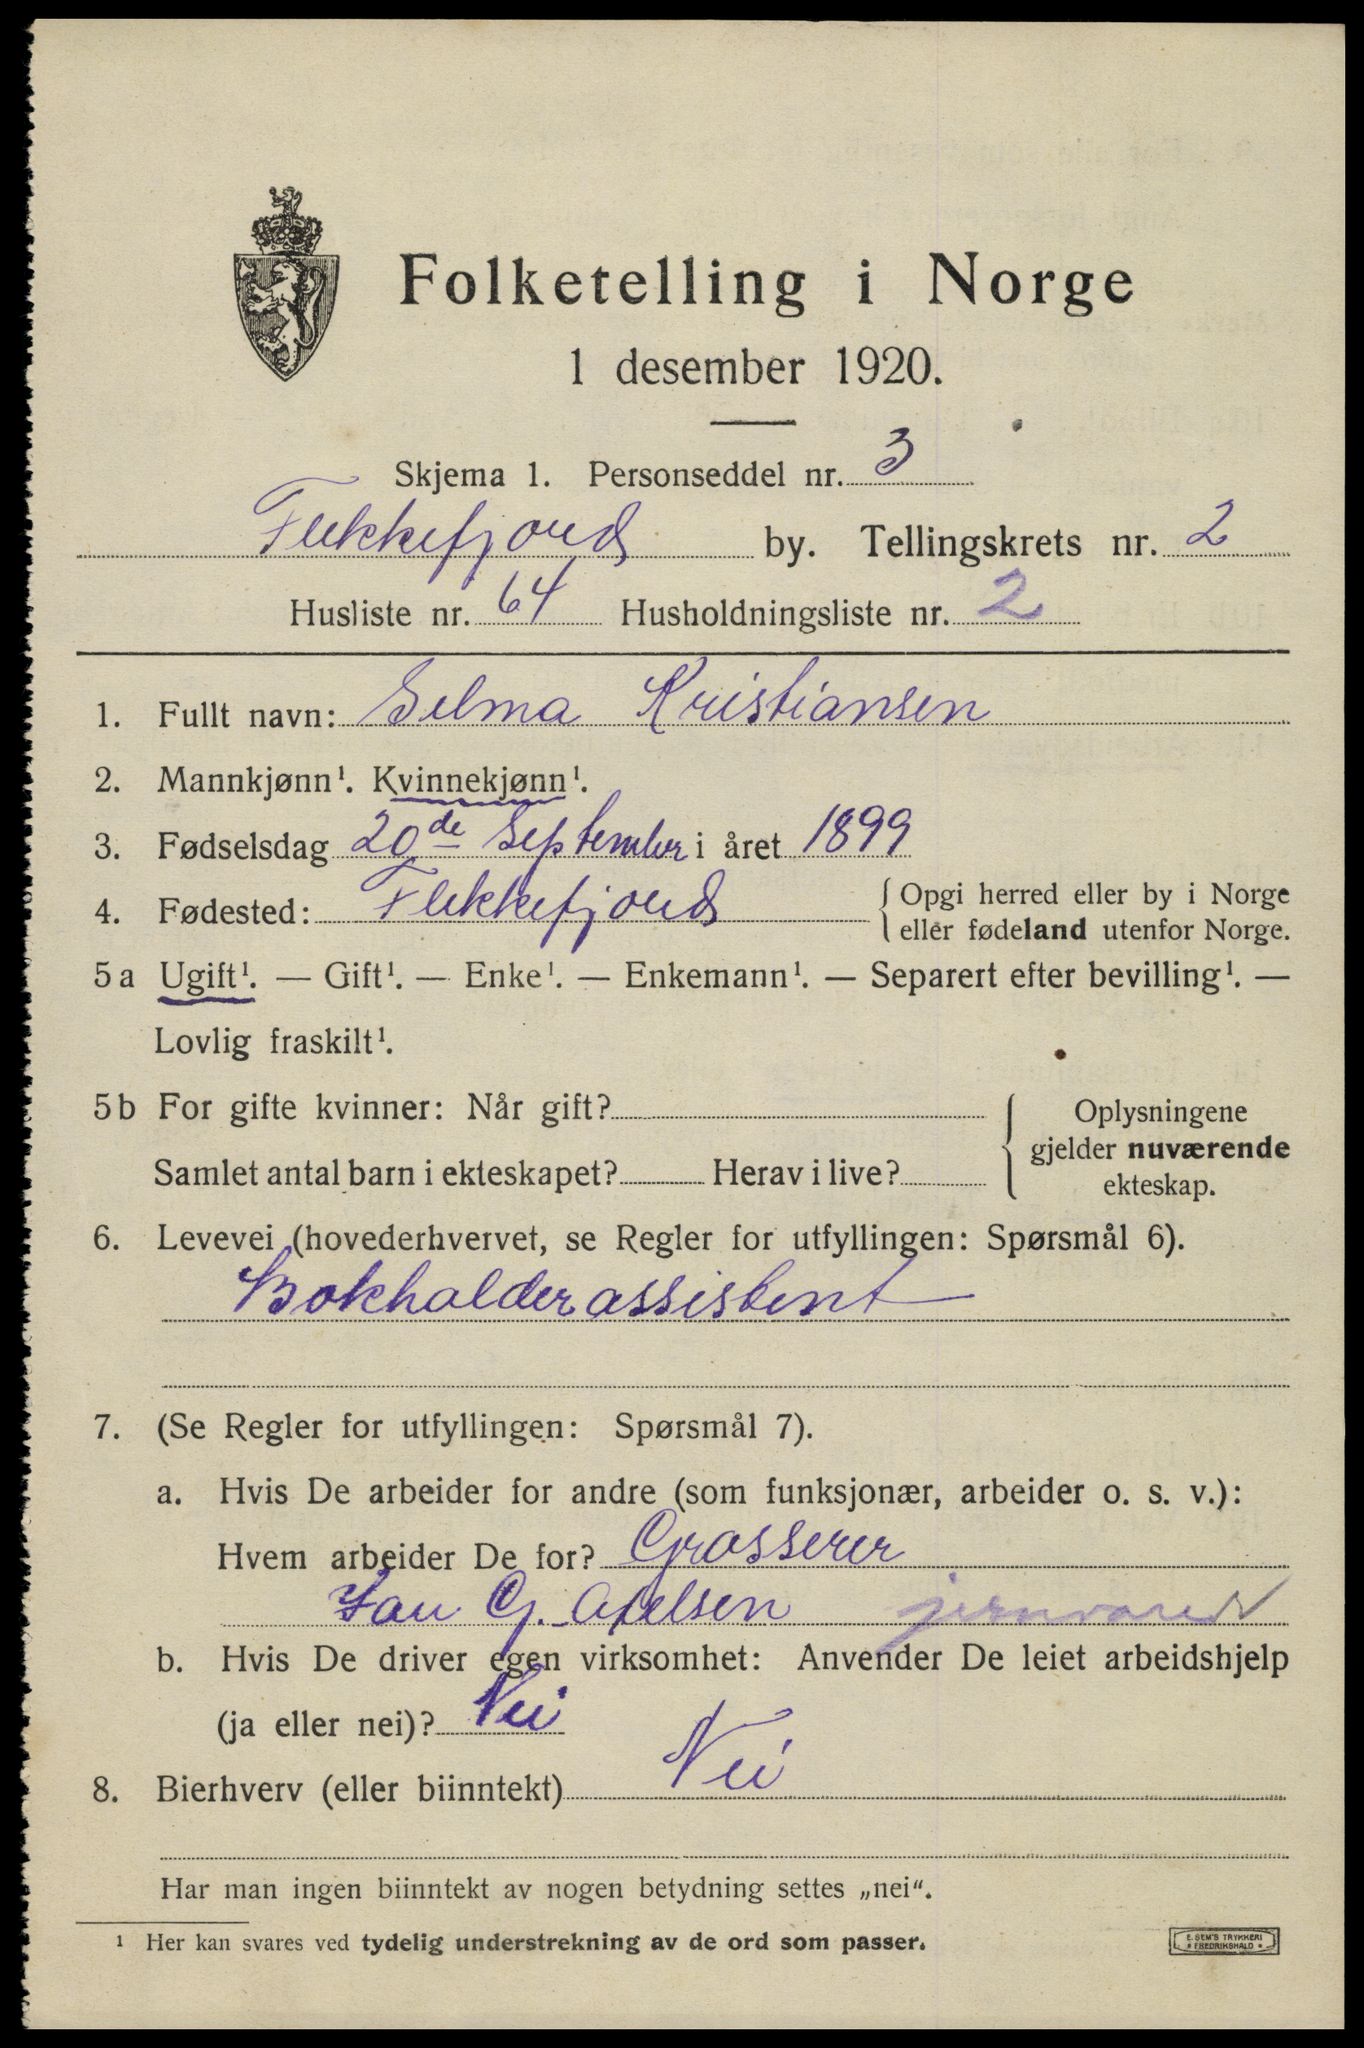 Folketelling i Norge
1 desember 1920.
Skjema 1. Personseddel nr. 3
Flekkefjord by. Tellingskrets nr. 2
Husliste nr. 64 Husholdningsliste nr. 2
1. Fullt navn: Selma Kristiansen
2. Mannkjønn¹. Kvinnekjønn¹.
3. Fødselsdag 20de September i året 1899
4. Fødested: Flekkefjord { Opgi herred eller by i Norge
eller fødeland utenfor Norge.
5a Ugift¹. — Gift¹. — Enke¹. — Enkemann¹. — Separert efter bevilling¹. —
Lovlig fraskilt¹.
5b For gifte kvinner: Når gift? { Oplysningene
gjelder nuværende
Samlet antal barn i ekteskapet? Herav i live?
ekteskap.
6. Levevei (hovederhvervet, se Regler for utfyllingen: Spørsmål 6).
Bokholderassistent
7. (Se Regler for utfyllingen: Spørsmål 7).
a. Hvis De arbeider for andre (som funksjonær, arbeider o. s. v.):
Hvem arbeider De for? Grosserer
Jau G. Axelsen jernvare
b. Hvis De driver egen virksomhet: Anvender De leiet arbeidshjelp
(ja eller nei)? Nei
8. Bierhverv (eller biinntekt) Nei
Har man ingen biinntekt av nogen betydning settes „nei“.
¹ Her kan svares ved tydelig understrekning av de ord som passer.
E. SEM'S TRYKKERI
* FREDRIKSHALD *